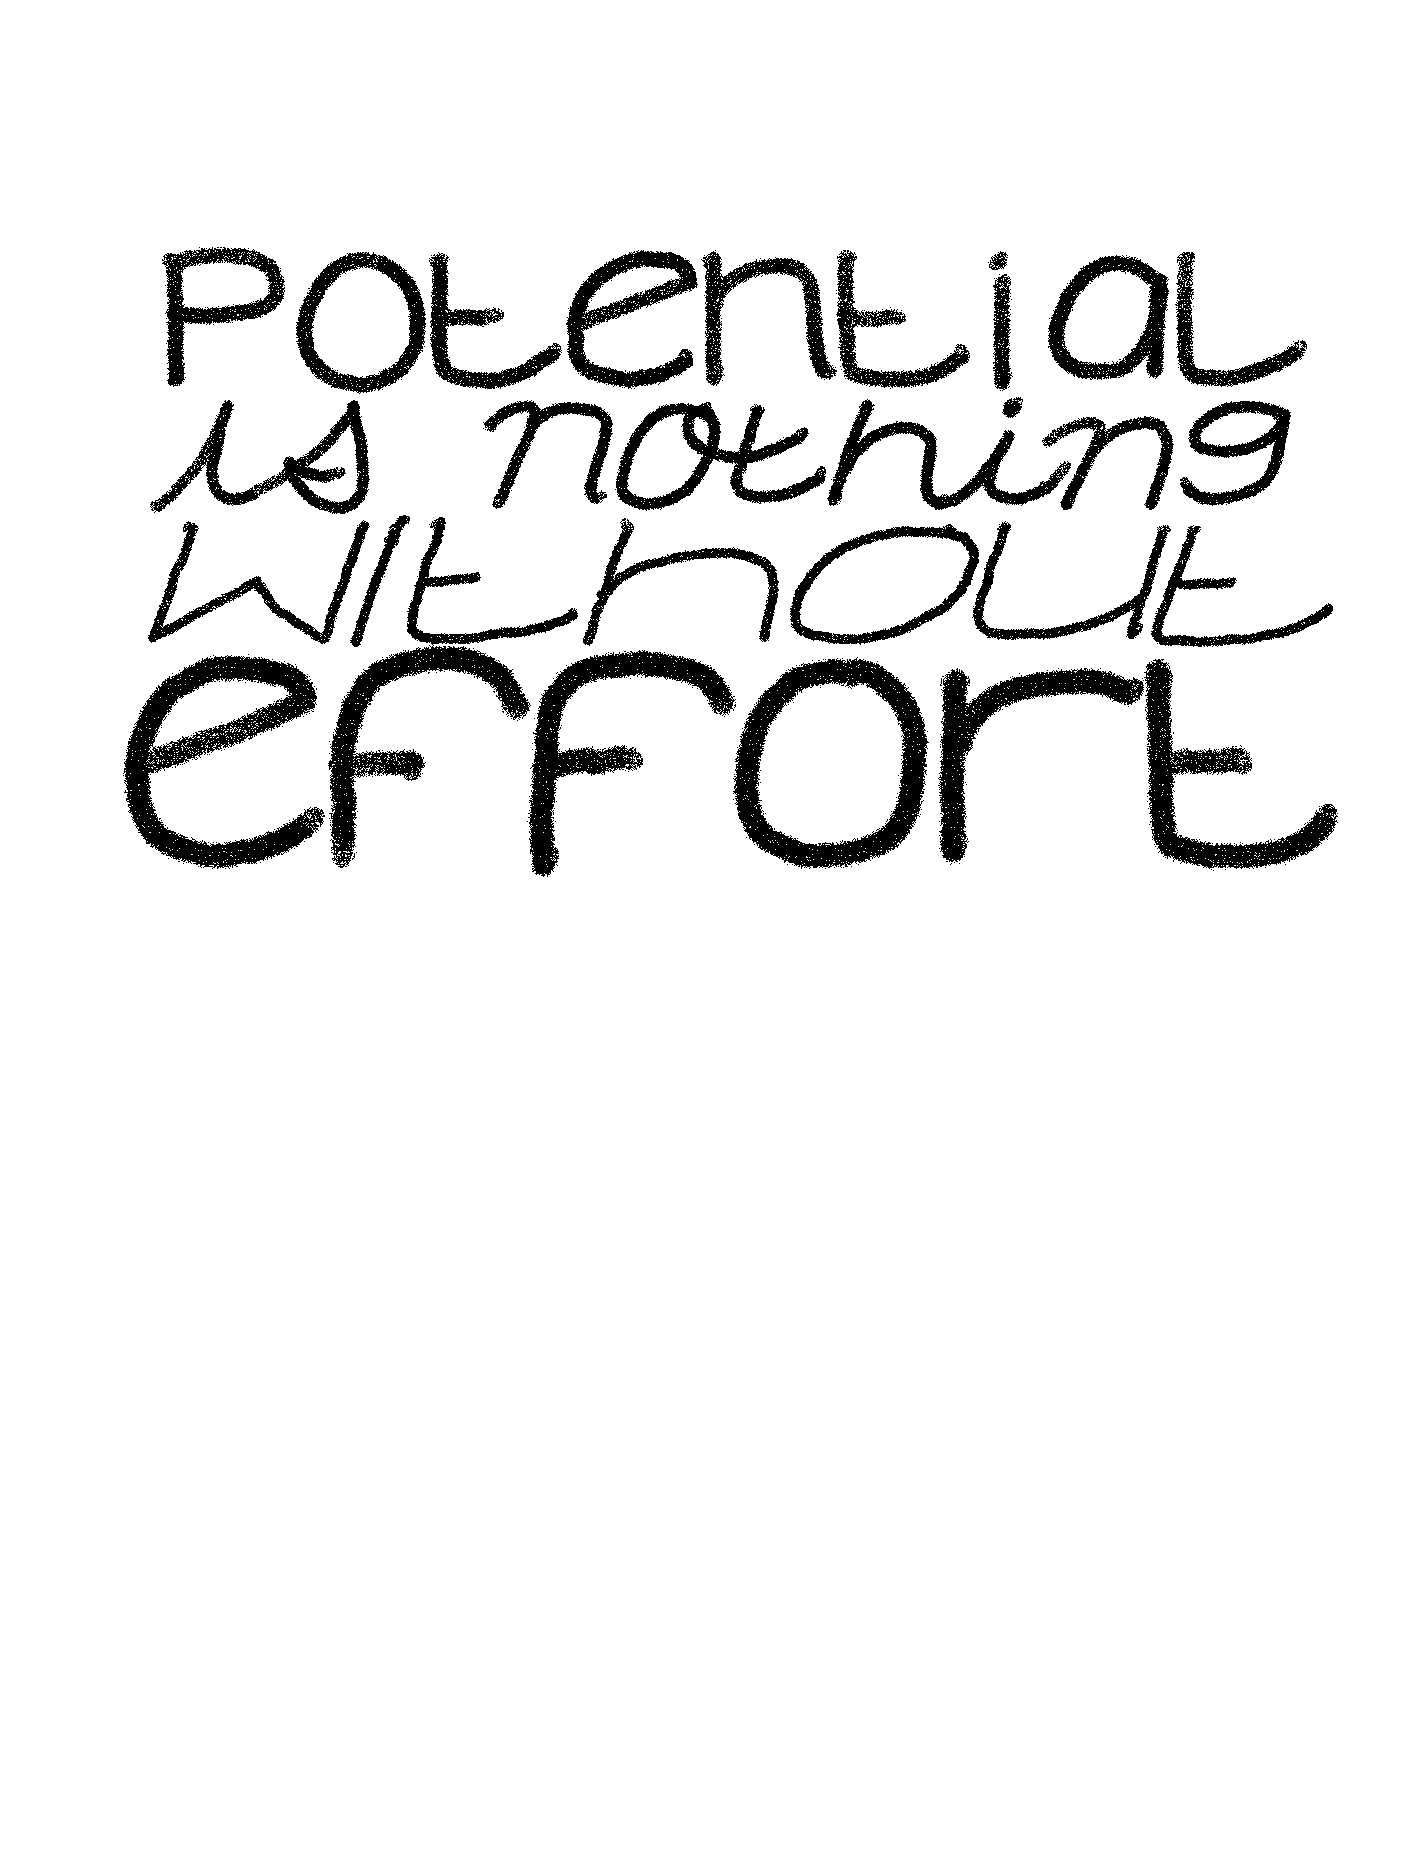 Potential
is nothing
without
effort